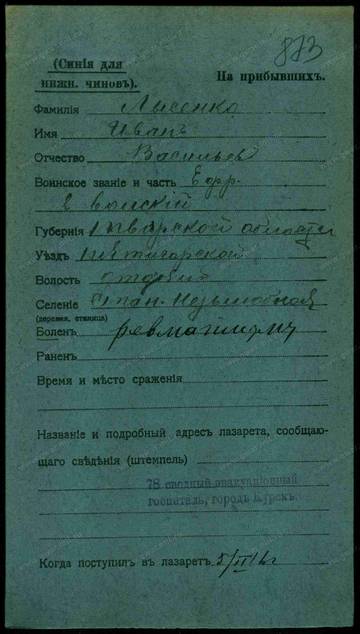 (Синія для
нижн. чиновъ).
873
На прибывшихъ.
Фамилія Лысенко
Имя Иванъ
Отчество Васильев
Воинское званіе и часть Ефр.
Губернія области
Уѣздъ
Волость
Селеніе Стан. Незлобная
(деревня, станица)
Боленъ ревматизмъ
Раненъ
Время и мѣсто сраженія
Названіе и подробный адресъ лазарета, сообщаю-
щаго свѣдѣнія (штемпель)
78 сводный эвакуаціонный
госпиталь, городъ Курскъ
Когда поступилъ въ лазаретъ 5/II 16 г